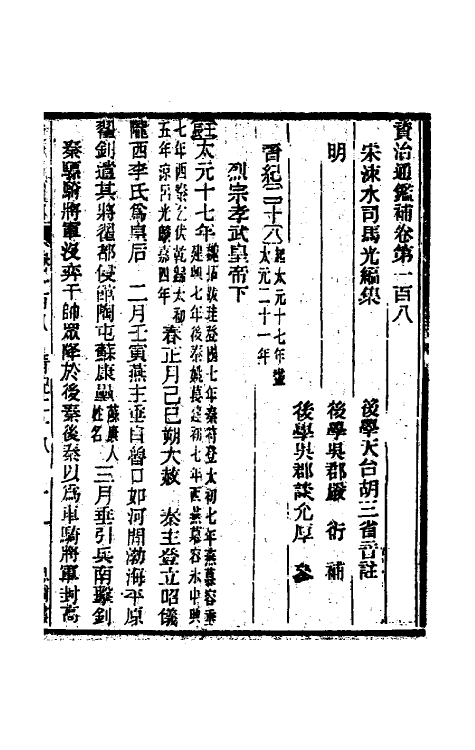 資治通鑑補卷第一百八
宋涑水司馬光編集
後學天台胡三省音註
明
後學吳郡嚴衍補
後學吳郡談允厚參
晉紀三十
起太元十七年盡
太元二十一年
烈宗孝武皇帝下
壬辰太元十七年
魏拓跋珪登國七年秦苻登太初七年燕慕容垂
建興七年後秦姚萇建初七年西燕慕容永中興
七年西秦乞伏乾歸太初
五年涼呂光麟嘉四年
春正月己巳朔大赦 秦主登立昭儀
隴西李氏為皇后 二月壬寅燕主垂自魯口如河間渤海平原
翟釗遣其將翟都侵館陶屯蘇康壘
蘇康人
姓名
三月垂引兵南擊釗
秦驃騎將軍沒弈干帥眾降於後秦後秦以為車騎將軍封高